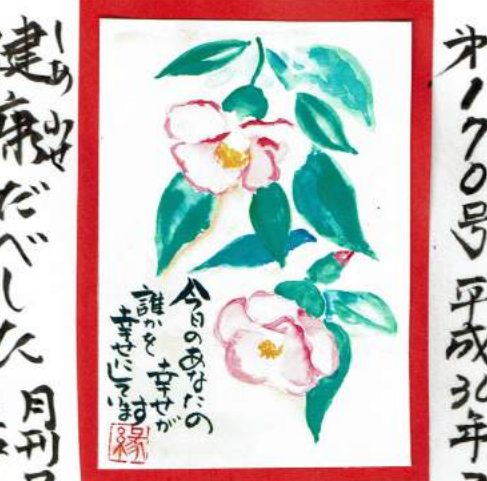 第170号 平成30年
今日のあなたの
幸せが
誰かを
幸せにしています
縁
しあわせ
健康だべした
月刊